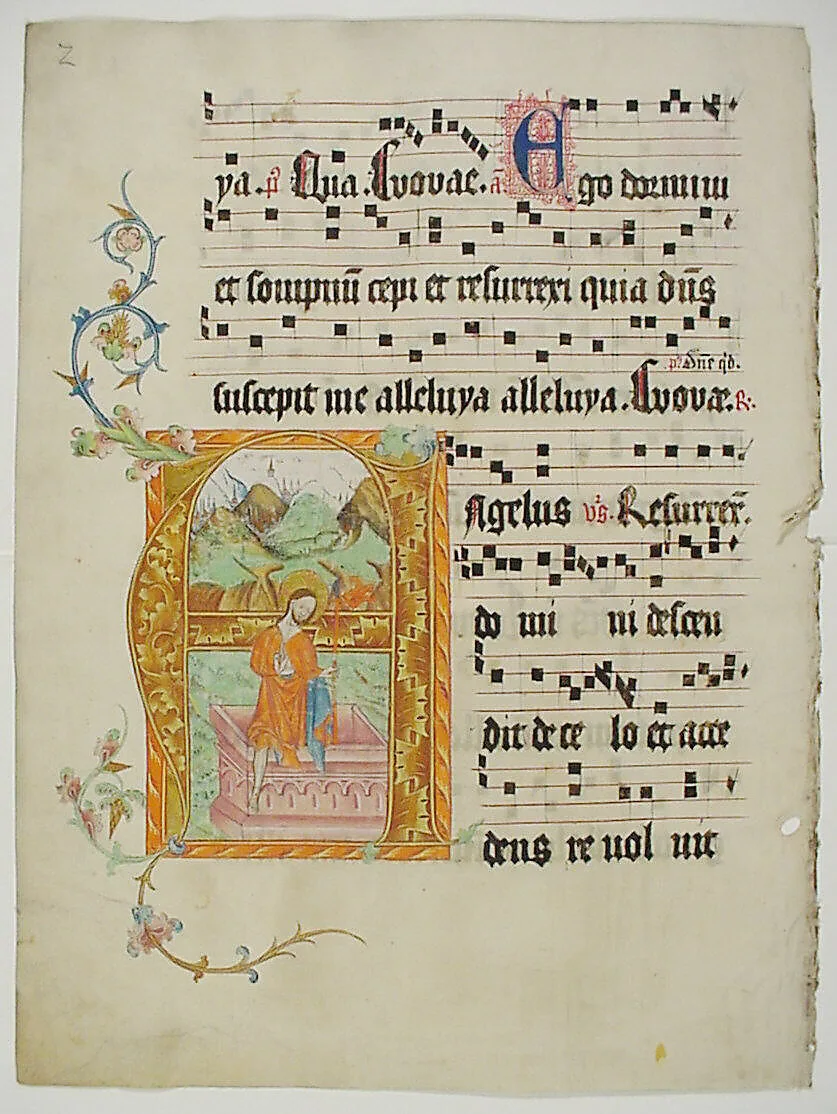 2
ya. ps Qua. Evovae. a Ego dormiui
et sompnū cepi et resurrexi quia dn̄s
ps Dn̄e qd.
suscepit me alleluya alleluya. Evovae. R.
Angelus vs. Resurrex̄.
do mi ni descen
dit de ce lo et acce
dens re uol uit